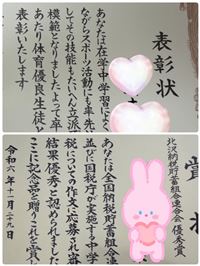 表彰状
あなたは在学中学習によく
ながらスポーツ活動にも率先
してその技能もたいへん立派
模範となりましたよって卒
あたり体育優良生徒と
表彰いたします
賞状
北沢納税貯蓄組合連合会 優秀賞
あなたは全国納税貯蓄組合連
並びに国税庁が実施する中学
税についての作文に応募され審
結果優秀と認められました
ここに記念品を贈りこれを賞し
令和六年十一月二十九日